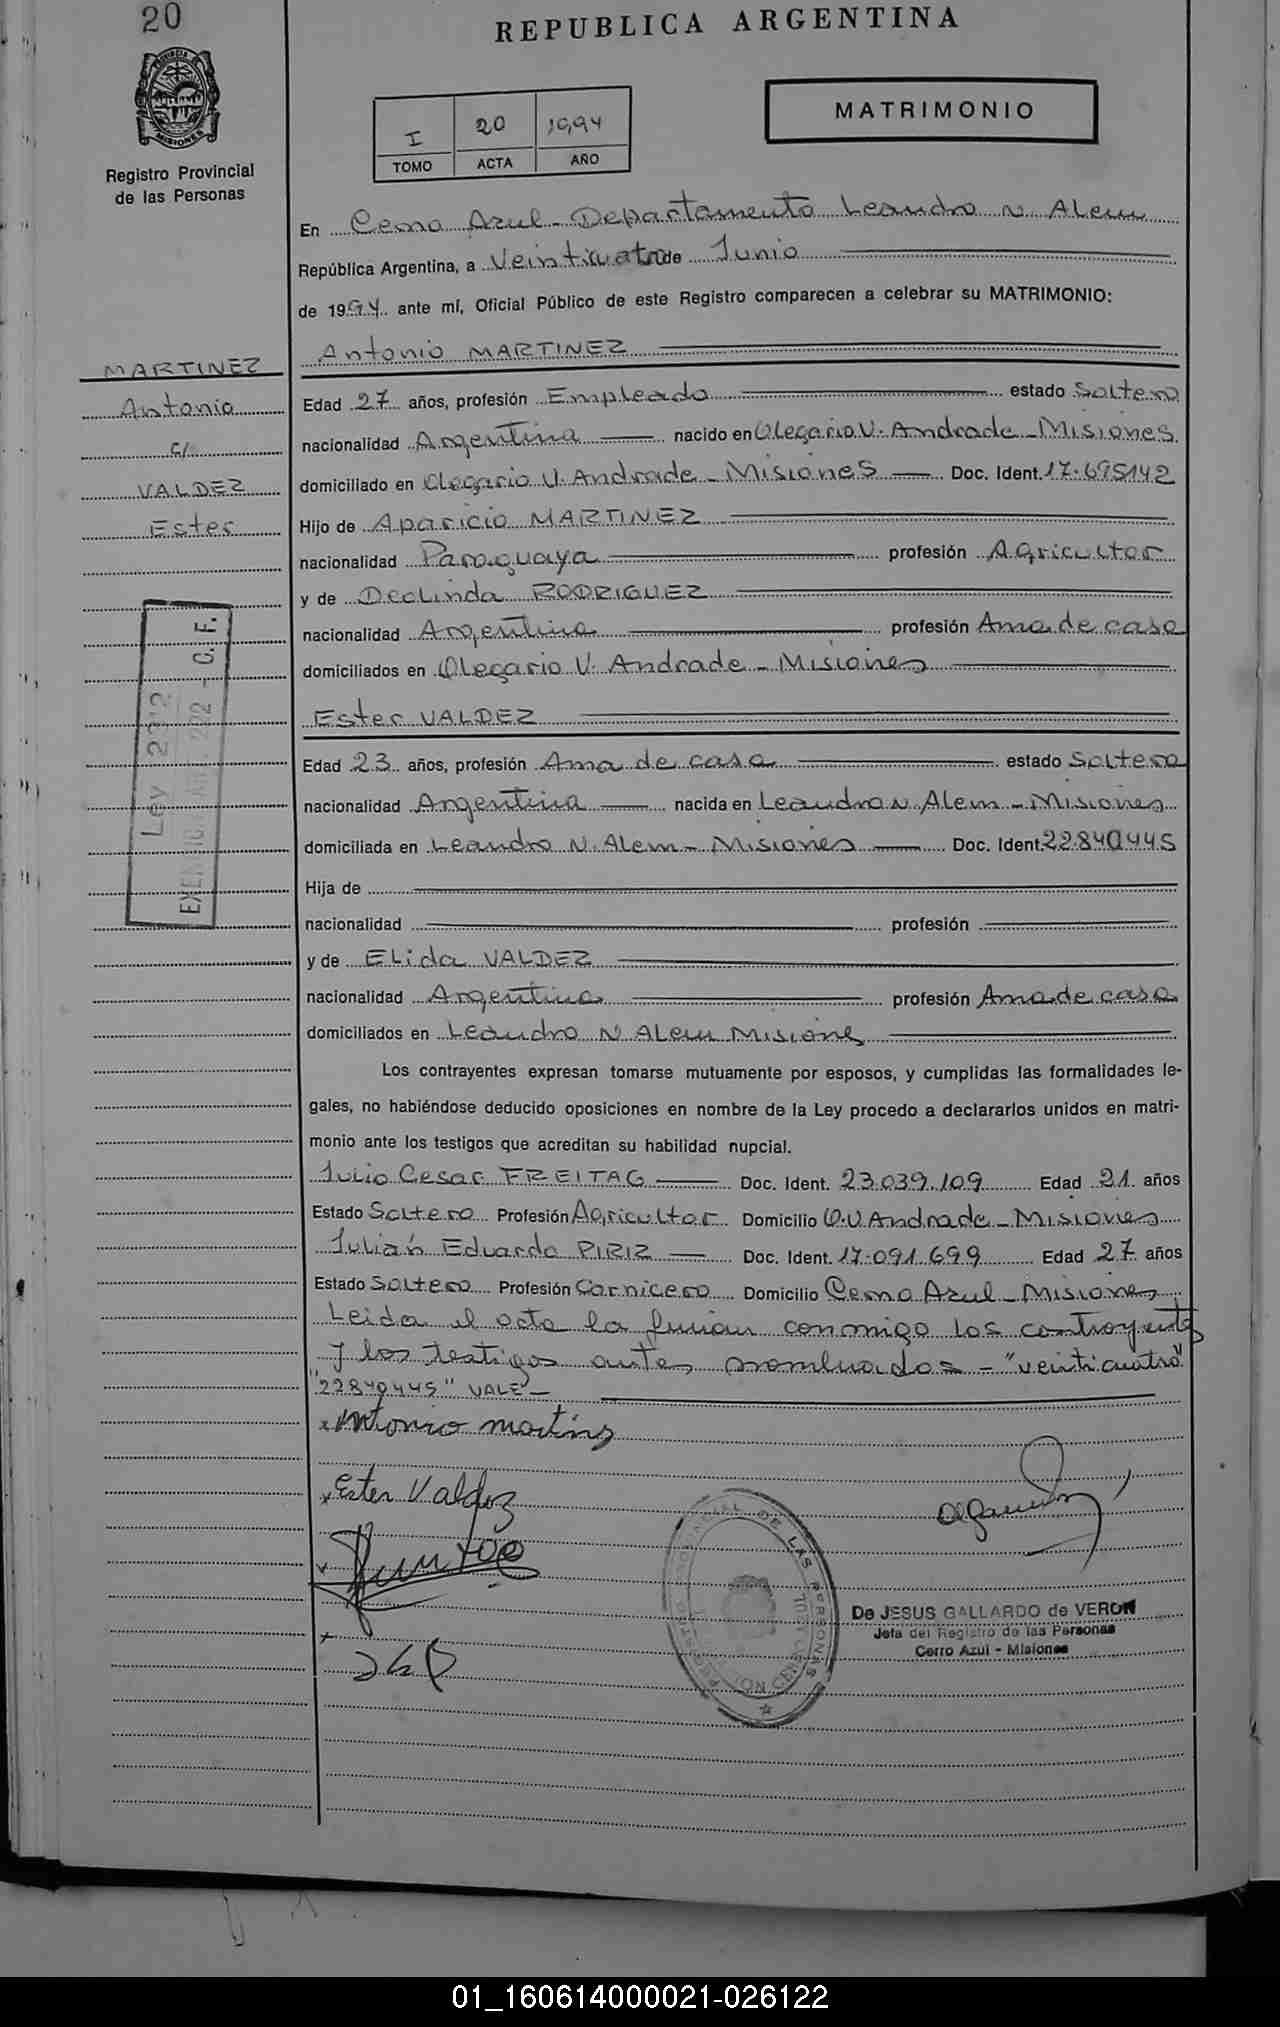 20
REPUBLICA ARGENTINA
PROVINCIA DE
MISIONES
Registro Provincial
de las Personas
I 20 1994
TOMO ACTA AÑO
MATRIMONIO
En Cerro Azul - Departamento Leandro N Alem
República Argentina, a Veinticuatro de Junio
de 1994 ante mí, Oficial Público de este Registro comparecen a celebrar su MATRIMONIO:
MARTINEZ
Antonio
c/
VALDEZ
Ester
Ley 2312
Antonio MARTINEZ
Edad 27 años, profesión Empleado estado Soltero
nacionalidad Argentina nacido en Olegario V. Andrade - Misiones
domiciliado en Olegario V. Andrade - Misiones Doc. Ident. 17.695142
Hijo de Aparicio MARTINEZ
nacionalidad Paraguaya profesión Agricultor
y de Deolinda RODRIGUEZ
nacionalidad Argentina profesión Ama de casa
domiciliados en Olegario V. Andrade - Misiones
Ester VALDEZ
Edad 23 años, profesión Ama de casa estado Soltera
nacionalidad Argentina nacida en Leandro N. Alem - Misiones
domiciliada en Leandro N. Alem - Misiones Doc. Ident. 22.840445
Hija de
nacionalidad profesión
y de Elida VALDEZ
nacionalidad Argentina profesión Ama de casa
domiciliados en Leandro N Alem Misiones
Los contrayentes expresan tomarse mutuamente por esposos, y cumplidas las formalidades le-
gales, no habiéndose deducido oposiciones en nombre de la Ley procedo a declararlos unidos en matri-
monio ante los testigos que acreditan su habilidad nupcial.
Julio Cesar FREITAG Doc. Ident. 23.039.109 Edad 21 años
Estado Soltero Profesión Agricultor Domicilio O.V Andrade - Misiones
Julián Eduardo PIRIZ Doc. Ident. 17.091.699 Edad 27 años
Estado Soltero Profesión Carnicero Domicilio Cerro Azul - Misiones
Leida el acta la firman conmigo los contrayentes
y los testigos antes nombrados - "veinticuatro"
"22840445" VALE -
x Antonio martins
x Ester Valdez
De JESUS GALLARDO de VERON
Jefa del Registro de las Personas
Cerro Azul - Misiones
01_160614000021-026122